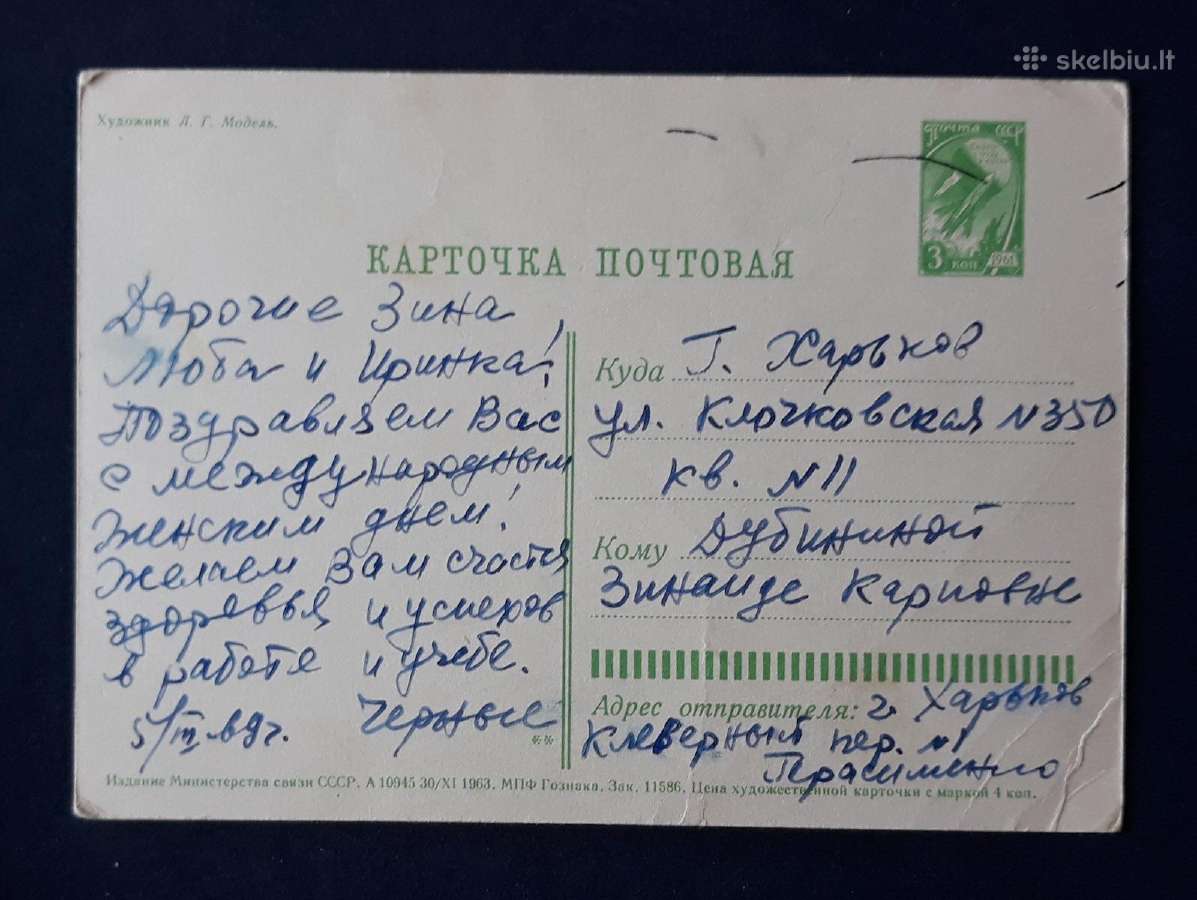 skelbiu.lt
Художник Л. Г. Модель.
почта СССР
3 коп 1961
КАРТОЧКА ПОЧТОВАЯ
Дорогие Зина
Люба и Иринка!
Поздравляем Вас
с международным
женским днем!
Желаем Вам счастья
здоровья и успехов
в работе и учебе.
5/III Черные
Куда Г. Харьков
ул. Клочковская №350
кв. №11
Кому Дубининой
Зинаиде Карповне
Адрес отправителя: г. Харьков
Клеверный пер. №1
Герасименко
Издание Министерства связи СССР. А 10945 30/XI 1963. МПФ Гознака. Зак. 11586. Цена художественной карточки с маркой 4 коп.